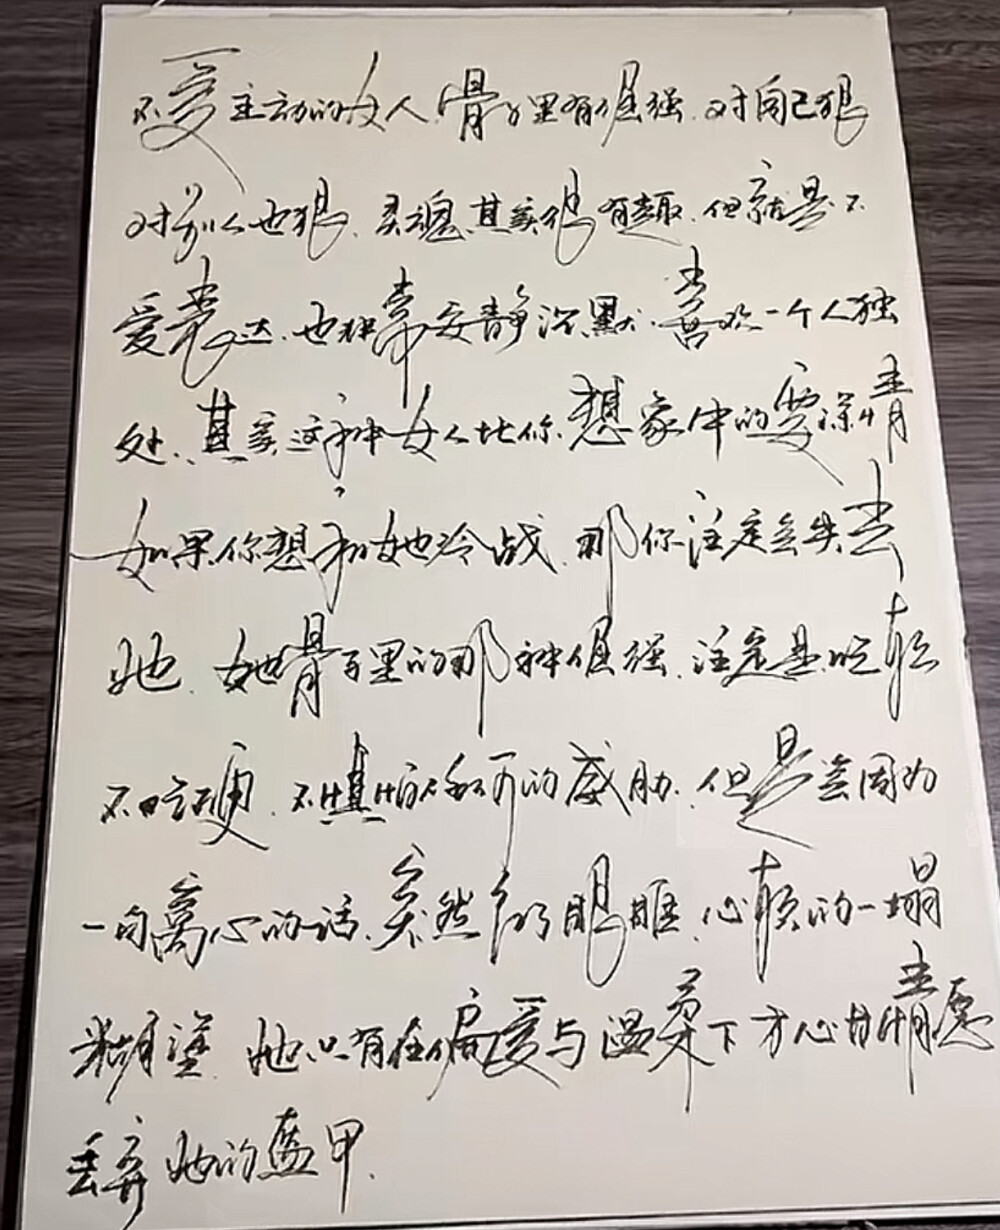 不爱主动的女人,骨子里有倔强.对自己狠
对别人也狠.灵魂其实很有趣.但就是不
爱表达.也独常安静沉默.喜欢一个人独
处.其实这种女人比你想象中的要深情
如果你想和她冷战.那你注定会失去
她.她骨子里的那种倔强.注定是吃软
不吃硬.不惧怕任何的威胁.但是会因为
一句离心的话.突然红了眼眶.心软的一塌
糊涂.她只有在偏爱与温柔下才心甘情愿
丢弃她的盔甲.